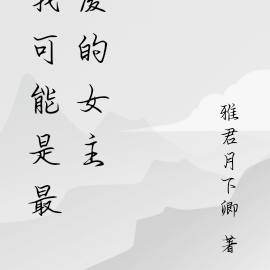 我可能是最
的女主
雅君月下卿 著